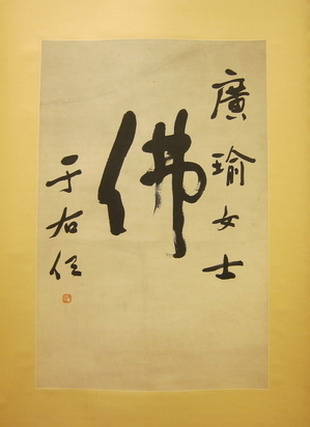 廣瑜女士
佛
于右任